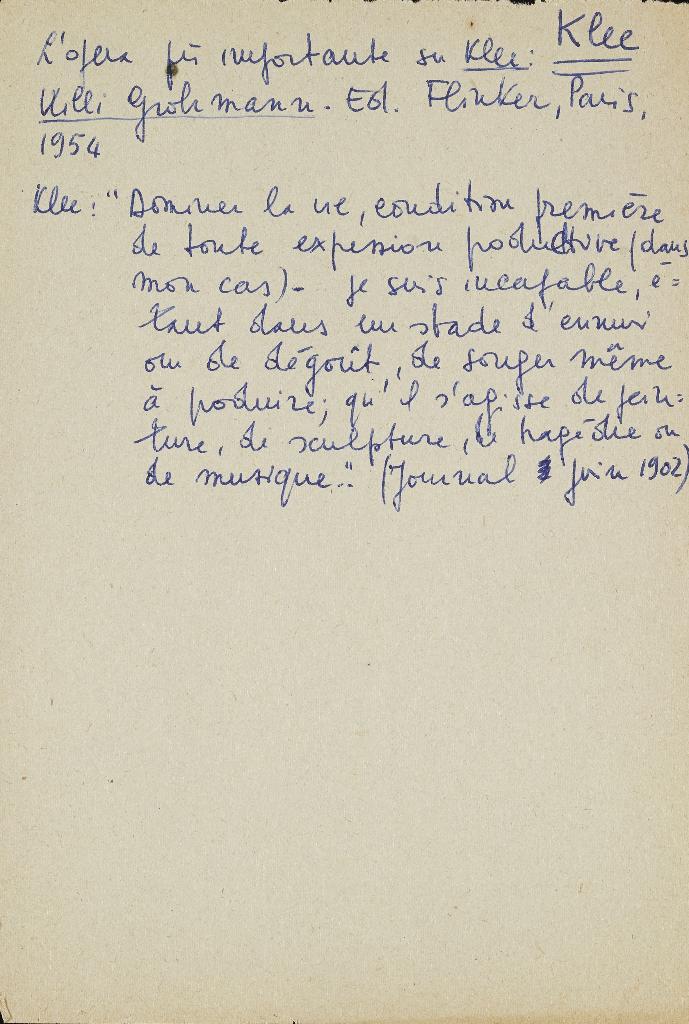 Klee
L'opera più importante su Klee:
Willi Grohmann. Ed. Flinker, Paris,
1954
Klee: "Dominer la vie, condition première
de toute expression productive (dans
mon cas). je suis incapable, é=
tant dans un stade d'ennui
ou de dégoût, de songer même
à produire; qu'il s'agisse de pein=
ture, de sculpture, de tragédie ou
de musique.." (Journal juin 1902)